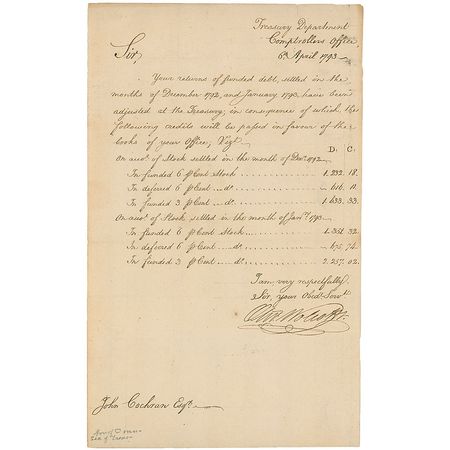 Treasury Department
Comptrollers Office,
6th April 1793
Sir,
Your returns of funded debt, settled in the
months of December 1792, and January 1793, have been
adjusted at the Treasury; in consequence of which, the
following credits will be passed in favour of the
books of your Office, Vizt.
D. C.
On acco. of Stock settled in the month of Decr. 1792
In funded 6 p Cent Stock 1,232. 18.
In deferred 6 p Cent do. 616. 11.
In funded 3 p Cent do. 1,633. 33
On acco. of Stock, settled in the month of Jany. 1793.
In funded 6 p Cent Stock 1,351. 32.
In deferred 6 p Cent do. 675. 74.
In funded 3 p Cent do. 2,257. 02.
I am, very respectfully
Sir, your Obedt. Servt.
Olivr. Wolcott Jr.
John Cochran Esqr.